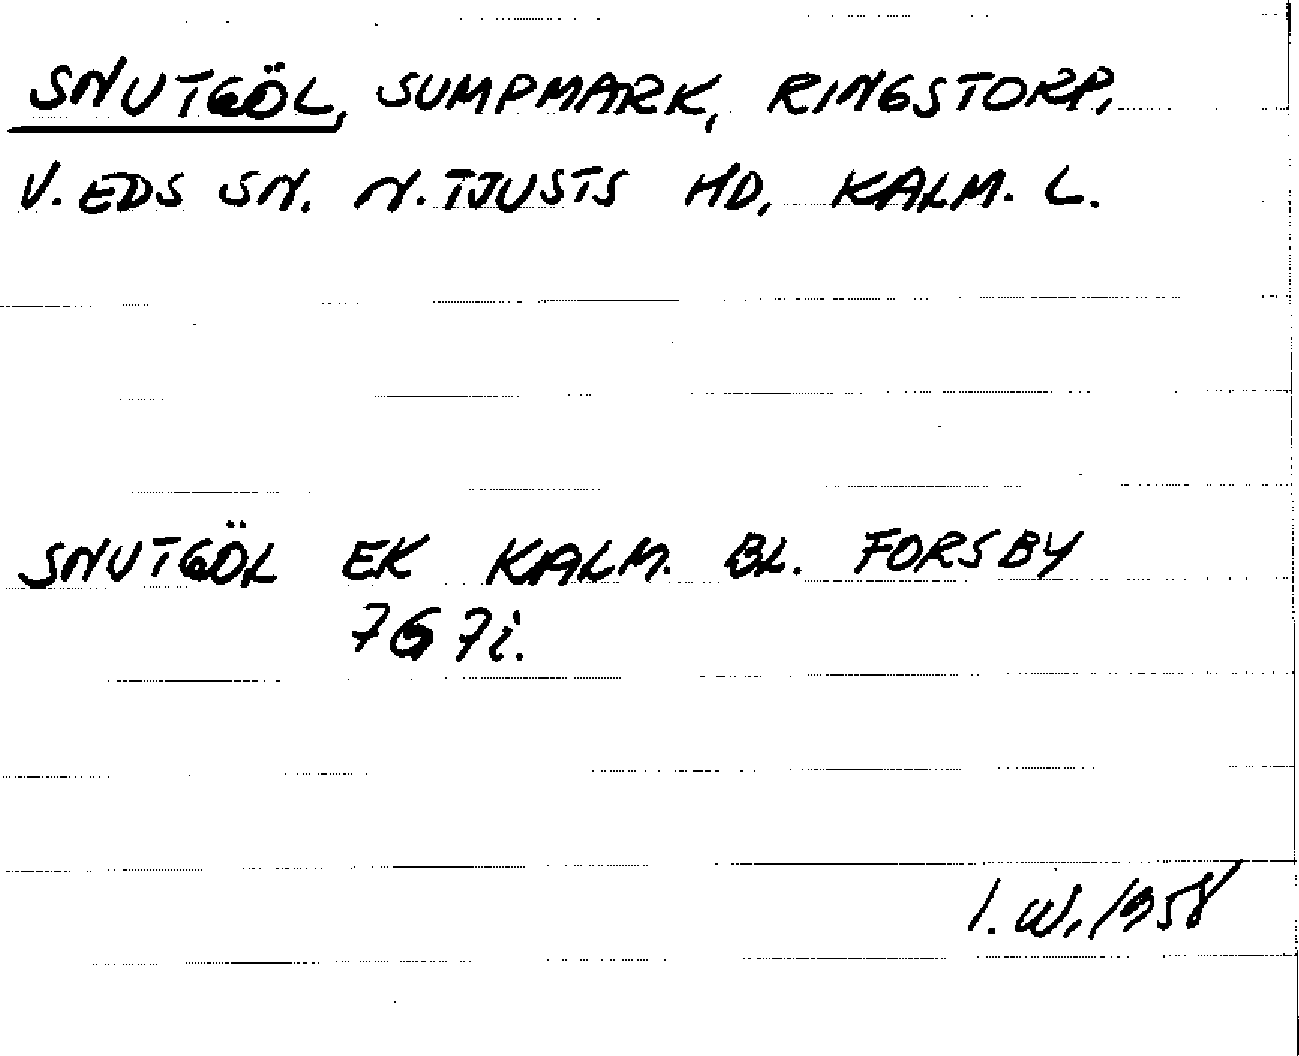 SNUTGÖL, SUMPMARK, RINGSTORP,
V. EDS SN. N. TJUSTS HD, KALM. L.
SNUTGÖL EK KALM. BL. FORSBY
7G 7i.
I. W. 1958